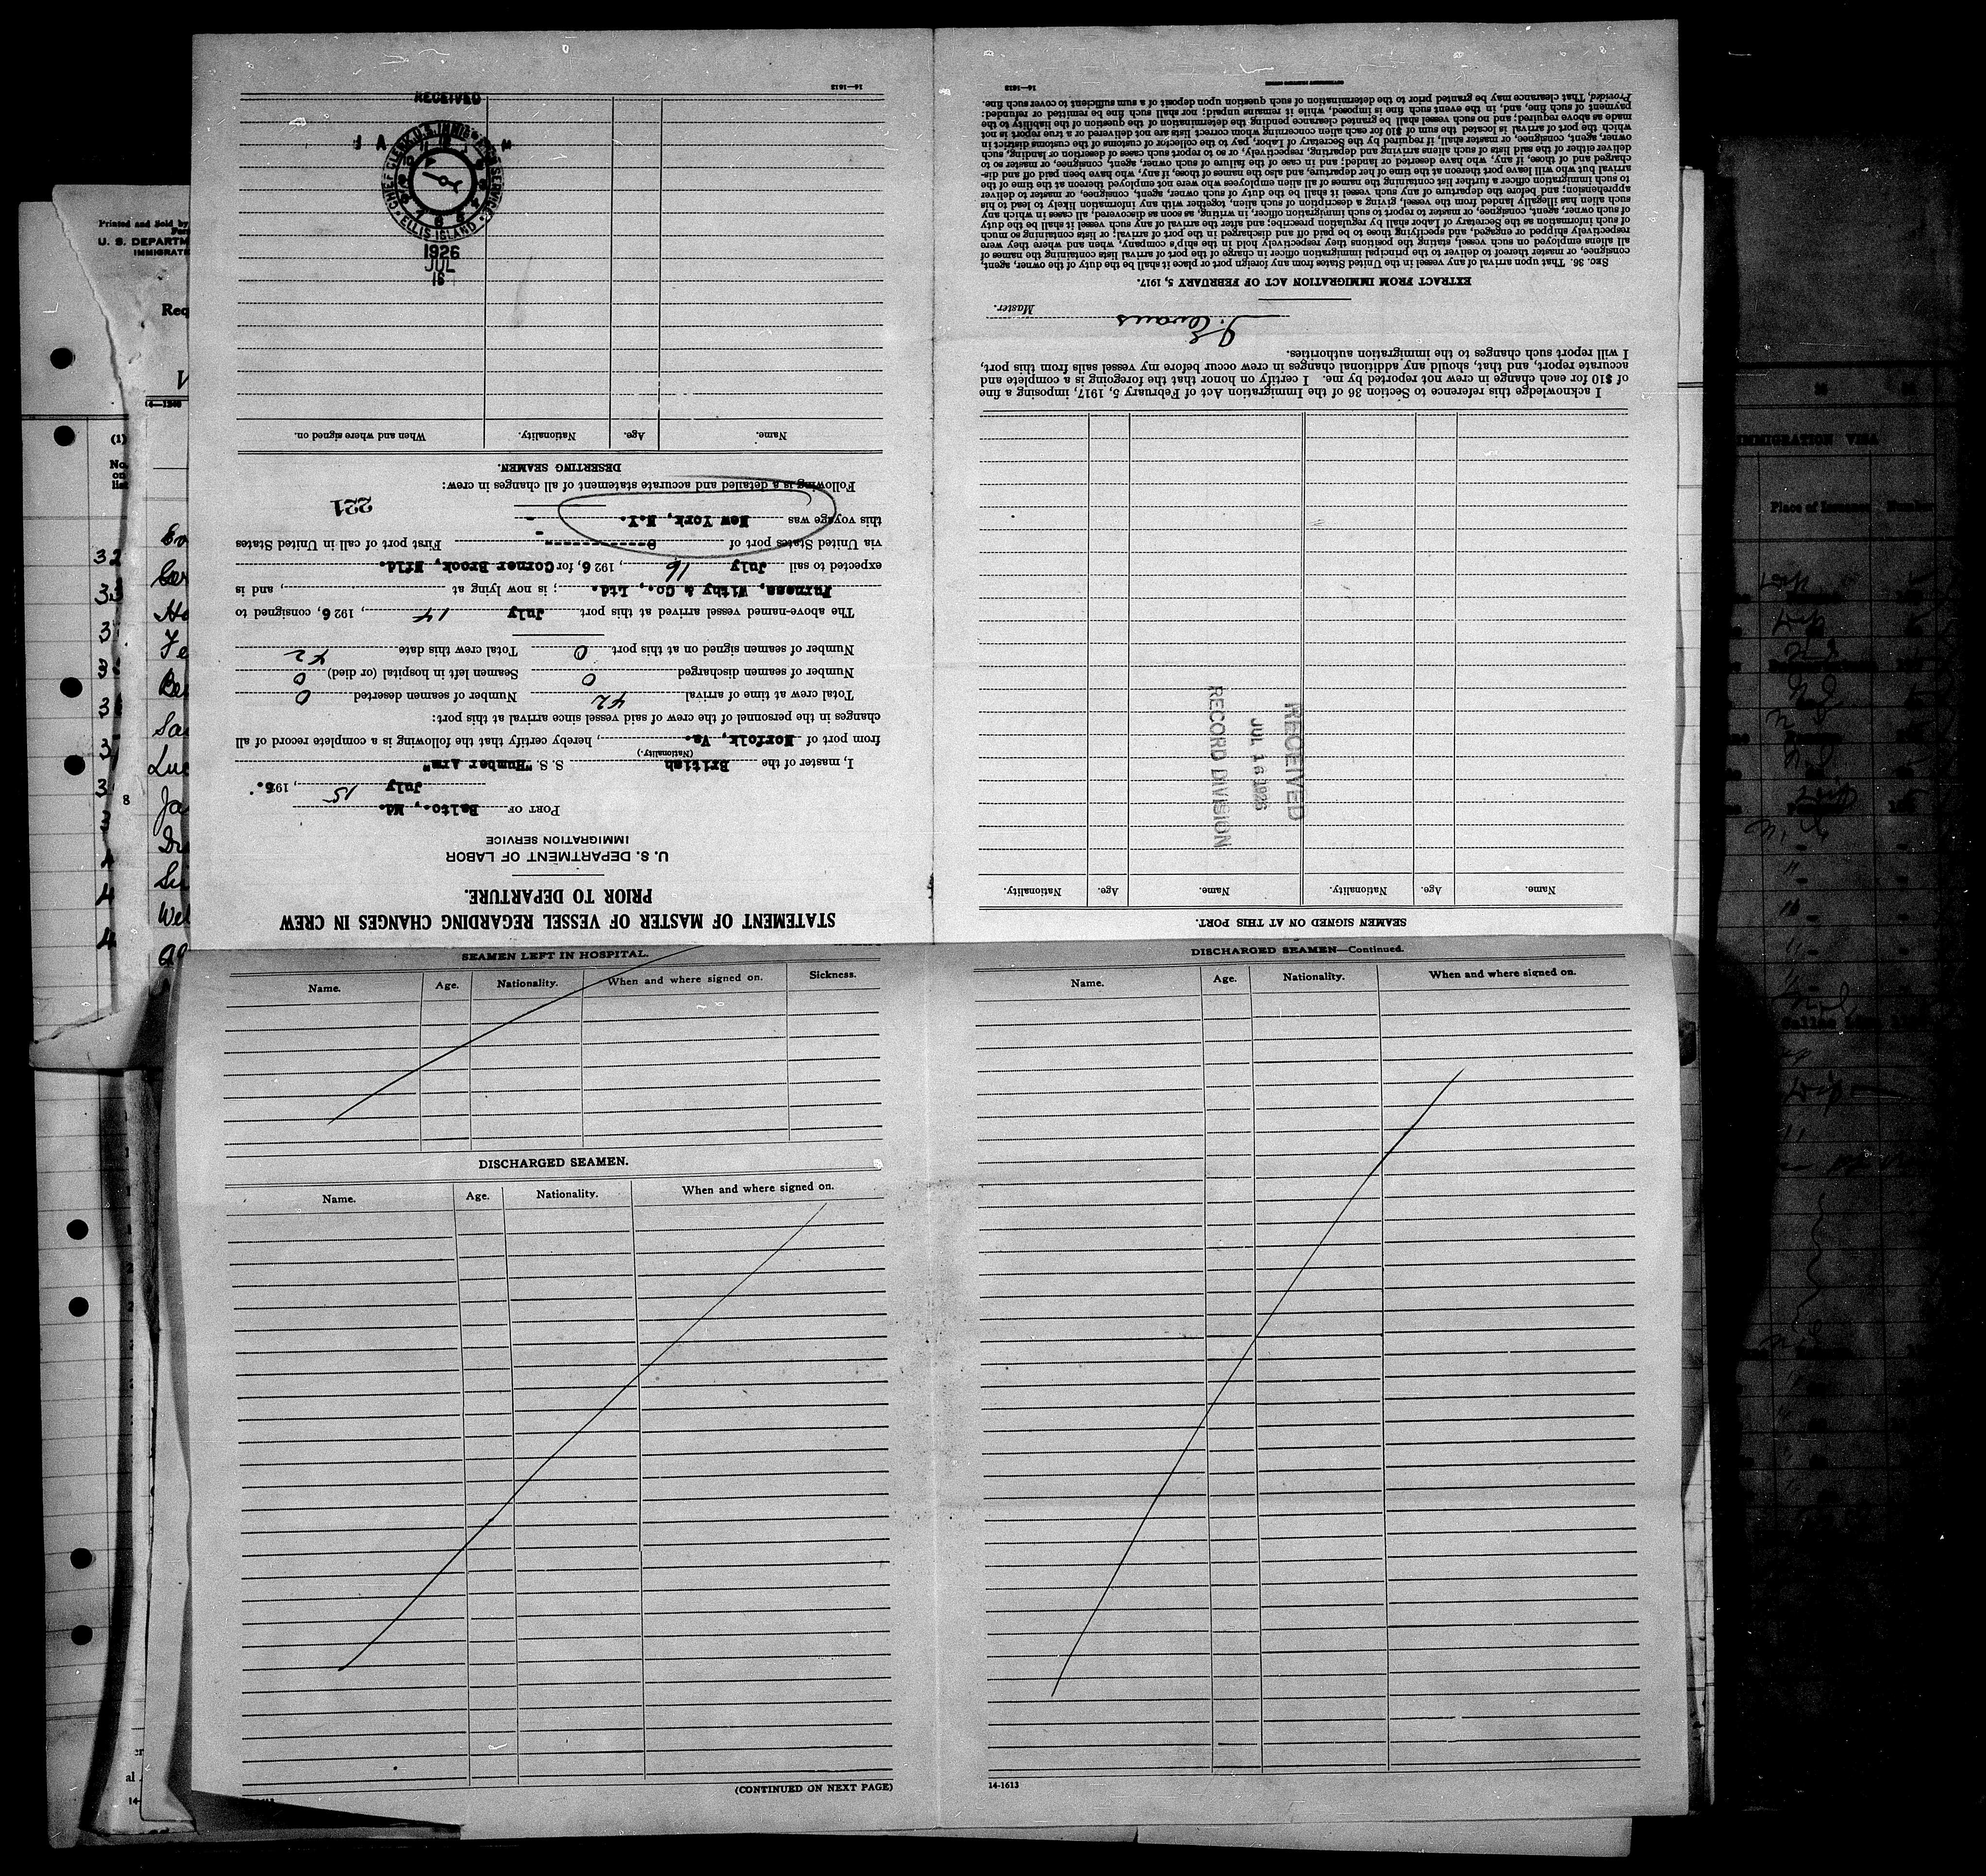 STATEMENT OF MASTER OF VESSEL REGARDING CHANGES IN CREW
PRIOR TO DEPARTURE.
U. S. DEPARTMENT OF LABOR
IMMIGRATION SERVICE
PORT OF Balto., Md.
July 15, 1926.
I, master of the British S. S. "Humber Arm"
(Nationality.)
from port of Norfolk, Va., hereby certify that the following is a complete record of all
changes in the personnel of the crew of said vessel since arrival at this port:
Total crew at time of arrival 42 Number of seamen deserted 0
Number of seamen discharged 0 Seamen left in hospital (or died) 0
Number of seamen signed on at this port 0 Total crew this date 42
The above-named vessel arrived at this port July 14, 1926, consigned to
Furness, Withy & Co., Ltd.; is now lying at , and is
expected to sail July 16, 1926, for Corner Brook, Nfld.
via United States port of 0 ---------- First port of call in United States
this voyage was New York, N.Y. -
221
Following is a detailed and accurate statement of all changes in crew:
DESERTING SEAMEN.
Name. Age. Nationality. When and where signed on.
16
JUL
1926
CHIEF CLERK U.S. IMMIG SERVICE
ELLIS ISLAND
RECEIVED
14—1613
SEAMEN SIGNED ON AT THIS PORT.
Name. Age. Nationality. Name. Age. Nationality.
RECEIVED
JUL 16 1926
RECORD DIVISION
I acknowledge this reference to Section 36 of the Immigration Act of February 5, 1917, imposing a fine
of $10 for each change in crew not reported by me. I certify on honor that the foregoing is a complete and
accurate report, and that, should any additional changes in crew occur before my vessel sails from this port,
I will report such changes to the immigration authorities.
Evans
Master.
EXTRACT FROM IMMIGRATION ACT OF FEBRUARY 5, 1917.
SEC. 36. That upon arrival of any vessel in the United States from any foreign port or place it shall be the duty of the owner, agent,
consignee, or master thereof to deliver to the principal immigration officer in charge of the port of arrival lists containing the names of
all aliens employed on such vessel, stating the positions they respectively hold in the ship's company, when and where they were
respectively shipped or engaged, and specifying those to be paid off and discharged in the port of arrival; or lists containing so much
of such information as the Secretary of Labor shall by regulation prescribe; and after the arrival of any such vessel it shall be the duty
of such owner, agent, consignee, or master to report to such immigration officer, in writing, as soon as discovered, all cases in which any
such alien has illegally landed from the vessel, giving a description of such alien, together with any information likely to lead to his
apprehension; and before the departure of any such vessel it shall be the duty of such owner, agent, consignee, or master to deliver
to such immigration officer a further list containing the names of all alien employees who were not employed thereon at the time of the
arrival but who will leave port thereon at the time of her departure, and also the names of those, if any, who have been paid off and dis-
charged and of those, if any, who have deserted or landed; and in case of the failure of such owner, agent, consignee, or master so to
deliver either of the said lists of such aliens arriving and departing, respectively, or so to report such cases of desertion or landing, such
owner, agent, consignee, or master shall, if required by the Secretary of Labor, pay to the collector of customs of the customs district in
which the port of arrival is located the sum of $10 for each alien concerning whom correct lists are not delivered or a true report is not
made as above required; and no such vessel shall be granted clearance pending the determination of the question of the liability to the
payment of such fine, and, in the event such fine is imposed, while it remains unpaid; nor shall such fine be remitted or refunded:
Provided, That clearance may be granted prior to the determination of such question upon deposit of a sum sufficient to cover such fine.
14—1613
SEAMEN LEFT IN HOSPITAL.
Name. Age. Nationality. When and where signed on. Sickness.
DISCHARGED SEAMEN.
Name. Age. Nationality. When and where signed on.
(CONTINUED ON NEXT PAGE)
DISCHARGED SEAMEN—Continued.
Name. Age. Nationality. When and where signed on.
14-1613
Printed and Sold by
U. S. DEPARTM
IMMIGRATI
Req
(1)
No.
on
list
32
33
8
IMMIGRATION VISA
Place of Issuance Number